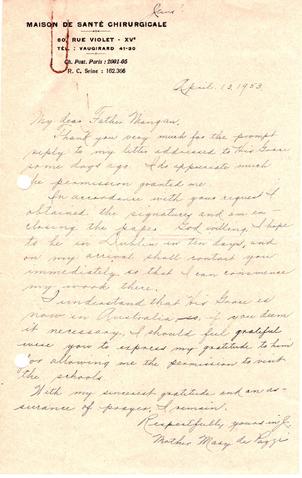 Paris
MAISON DE SANTÉ CHIRURGICALE
60, RUE VIOLET - XVe
TÉL : VAUGIRARD 41-20
Ch. Post. Paris : 2001-05
R. C. Seine : 162.366
April. 12, 1953
My dear Father Mangan,
Thank you very much for the prompt
reply to my letter addressed to His Grace
some days ago. I do appreciate much
the permission granted me.
In accordance with your request I
obtained the signatures and am en-
closing the paper. God willing, I hope
to be in Dublin in ten days, and
on my arrival shall contact you
immediately so that I can commence
my work there.
I understand that His Grace is
now in Australia so, if you deem
it necessary, I should feel grateful
were you to express my gratitude to him
for allowing me the permission to visit
the schools.
With my sincerest gratitude and an as-
surance of prayer, I remain.
Respectfully yours in J.
Mother Mary de Pazzi